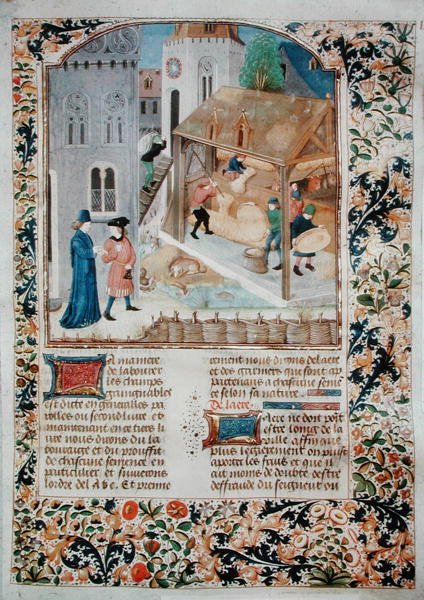 A maniere
de labourer
les champs
gaingnables
est dicte en generalles pa
rolles ou second liure Et
maintenant en ce tiers li
ure nous dirons du la
bourage et du prouffit
de chascune semence en
particulier et suiurons
lordre del A b c. Et premie
rement nous dirons de laire
et des garniers que sont ap
partenans a chascune semē
ce selon sa nature.
De laire.
aire ne doit poīt
estre loings de la
ville affin que
plus legierement on puist
aporter les fruis et que il
ait moins de doubte destre
deffraude du seigneur ou